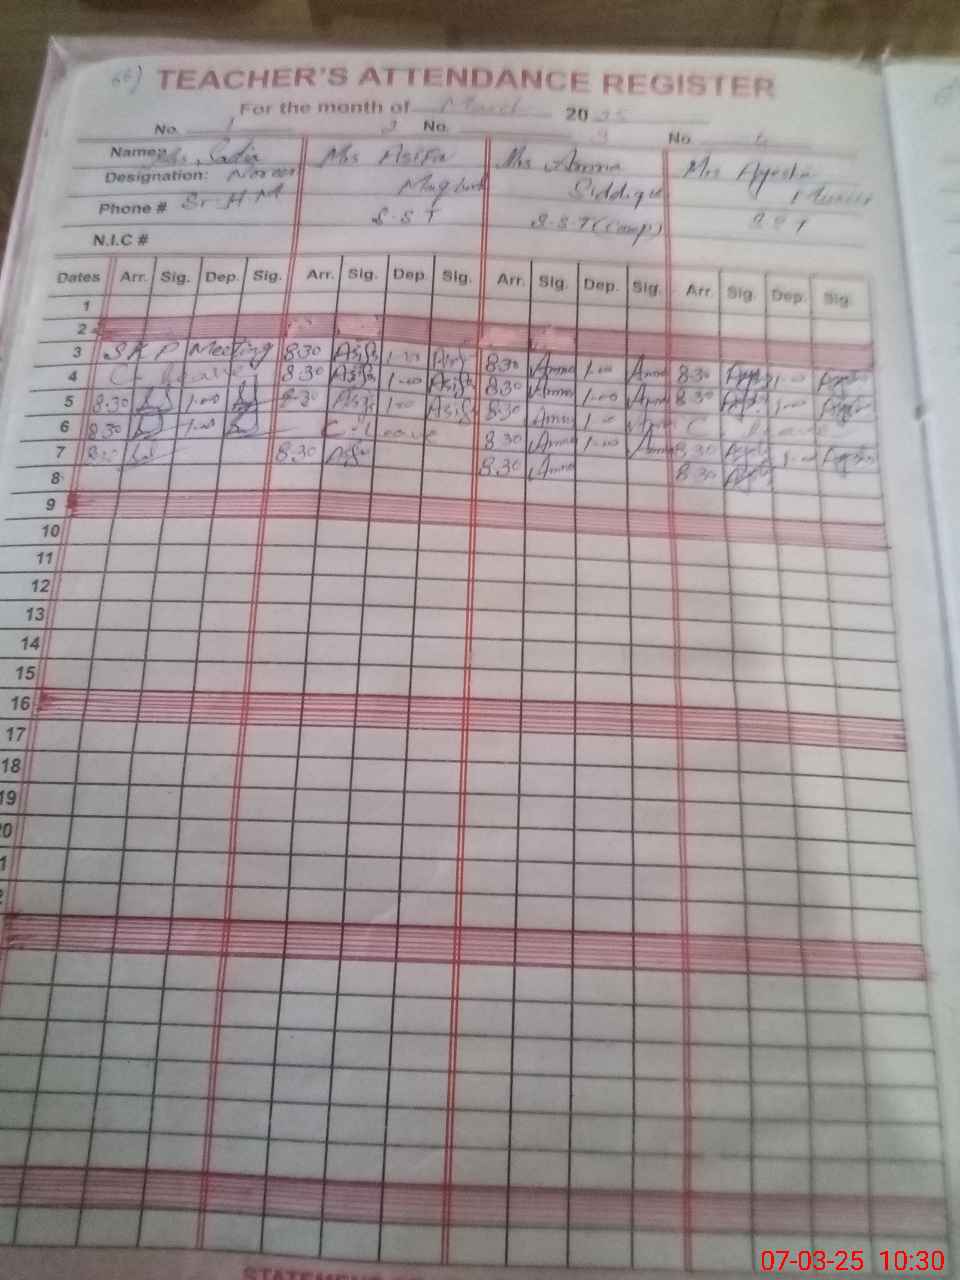 66) TEACHER'S ATTENDANCE REGISTER
For the month of March 2025
No. 1 2 No. 3 No. 4
Name: Mrs. Sadia Mrs Asifa Mrs Amna Mrs Ayesha
Designation: Noreen Siddique
Phone # Sr. H M S.S.T S.S.T (Comp)
N.I.C #
Dates Arr. Sig. Dep. Sig. Arr. Sig. Dep. Sig. Arr. Sig. Dep. Sig. Arr. Sig. Dep. Sig.
1
2
3 Meeting 8:30 Asifa 1:00 Asifa 8:30 Amna 1:00 Amna 8:30 1:00
4 C. Leave 8:30 Asifa 1:00 Asifa 8:30 Amna 1:00 Amna 8:30 1:00
5 8:30 1:00 8:30 Asifa 1:00 Asifa 8:30 Amna 1:00 Amna C. Leave
6 8:30 1:00 C. Leave 8:30 Amna 1:00 Amna 8:30 1:00
7 8:30 8:30 Asifa 8:30 Amna 8:30
8
9
10
11
12
13
14
15
16
17
18
19
07-03-25 10:30